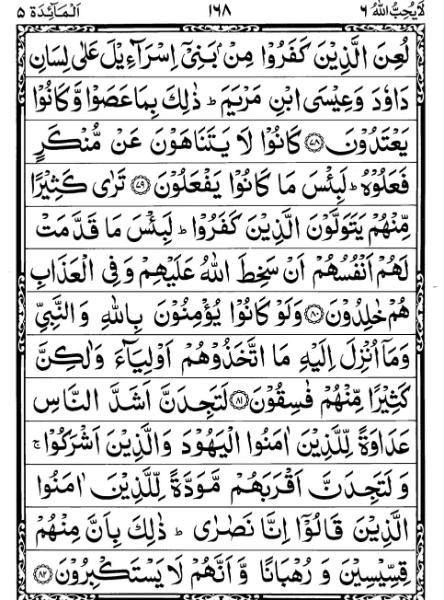 لَا يُحِبُّ اللّٰهُ ٦ ١٦٨ اَلْمَآئِدَة ٥
لُعِنَ الَّذِيْنَ كَفَرُوْا مِنْۢ بَنِيْۤ اِسْرَآءِيْلَ عَلٰى لِسَانِ
دَاوٗدَ وَعِيْسَى ابْنِ مَرْيَمَ ؕ ذٰلِكَ بِمَا عَصَوْا وَّكَانُوْا
يَعْتَدُوْنَ ﴿٧٨﴾ كَانُوْا لَا يَتَنَاهَوْنَ عَنْ مُّنْكَرٍ
فَعَلُوْهُ ؕ لَبِئْسَ مَا كَانُوْا يَفْعَلُوْنَ ﴿٧٩﴾ تَرٰى كَثِيْرًا
مِّنْهُمْ يَتَوَلَّوْنَ الَّذِيْنَ كَفَرُوْا ؕ لَبِئْسَ مَا قَدَّمَتْ
لَهُمْ اَنْفُسُهُمْ اَنْ سَخِطَ اللّٰهُ عَلَيْهِمْ وَفِي الْعَذَابِ
هُمْ خٰلِدُوْنَ ﴿٨٠﴾ وَلَوْ كَانُوْا يُؤْمِنُوْنَ بِاللّٰهِ وَالنَّبِيِّ
وَمَاۤ اُنْزِلَ اِلَيْهِ مَا اتَّخَذُوْهُمْ اَوْلِيَآءَ وَلٰكِنَّ
كَثِيْرًا مِّنْهُمْ فٰسِقُوْنَ ﴿٨١﴾ لَتَجِدَنَّ اَشَدَّ النَّاسِ
عَدَاوَةً لِّلَّذِيْنَ اٰمَنُوا الْيَهُوْدَ وَالَّذِيْنَ اَشْرَكُوْا ۚ
وَلَتَجِدَنَّ اَقْرَبَهُمْ مَّوَدَّةً لِّلَّذِيْنَ اٰمَنُوا
الَّذِيْنَ قَالُوْۤا اِنَّا نَصٰرٰى ؕ ذٰلِكَ بِاَنَّ مِنْهُمْ
قِسِّيْسِيْنَ وَرُهْبَانًا وَّاَنَّهُمْ لَا يَسْتَكْبِرُوْنَ ﴿٨٢﴾